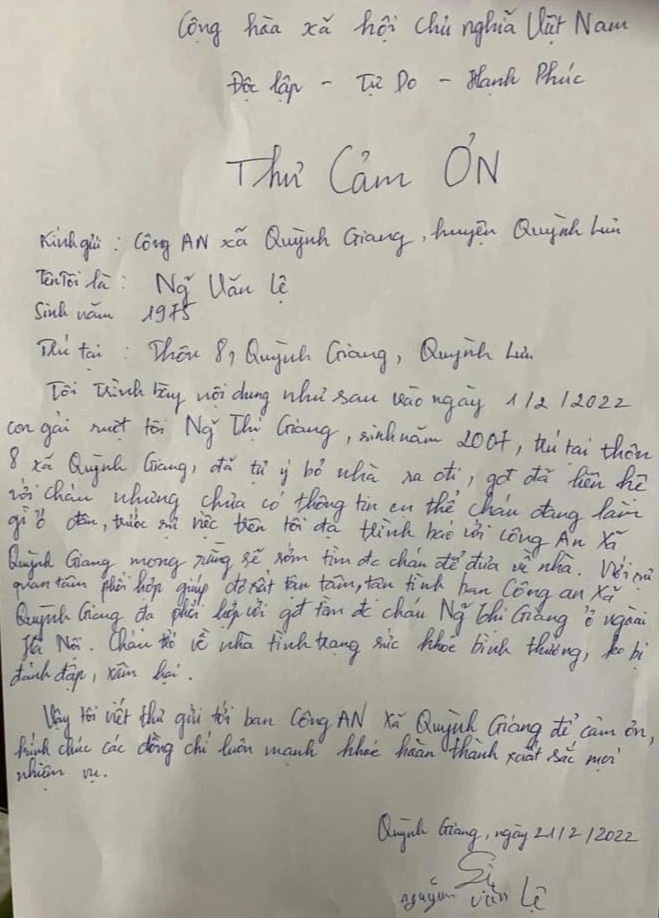 Cộng hòa xã hội chủ nghĩa Việt Nam
Độc lập - Tự Do - Hạnh Phúc
Thư Cảm ƠN
Kính gửi : Công AN xã Quỳnh Giang, huyện Quỳnh Lưu
Tên Tôi là : Ng~ Văn Lệ
Sinh năm 1975
Thú tại : Thôn 8, Quỳnh Giang, Quỳnh Lưu
Tôi trình bày nội dung như sau vào ngày 1/2/2022
con gái ruột tôi Ng~ Thị Giang, sinh năm 2007, trú tại thôn
8 xã Quỳnh Giang, đã tự ý bỏ nhà ra đi, gđ đã liên hệ
với cháu nhưng chưa có thông tin cụ thể cháu đang làm
gì ở đâu, trước sự việc trên tôi đã trình báo với công An Xã
Quỳnh Giang mong rằng sẽ sớm tìm đc cháu để đưa về nhà. Với sự
quan tâm phối hợp giúp đỡ rất tận tâm, tận tình ban Công an Xã
Quỳnh Giang đã phối hợp với gđ tìm đc cháu Ng~ thị Giang ở ngoài
Hà Nội. Cháu trở về nhà tình trạng sức khoẻ bình thường, ko bị
đánh đập, xâm hại.
Vậy tôi viết thư gửi tới ban Công AN Xã Quỳnh Giang để cảm ơn,
kính chúc các đồng chí luôn mạnh khoẻ hoàn thành xuất sắc mọi
nhiệm vụ.
Quỳnh Giang, ngày 21/2/2022
nguyễn văn Lệ